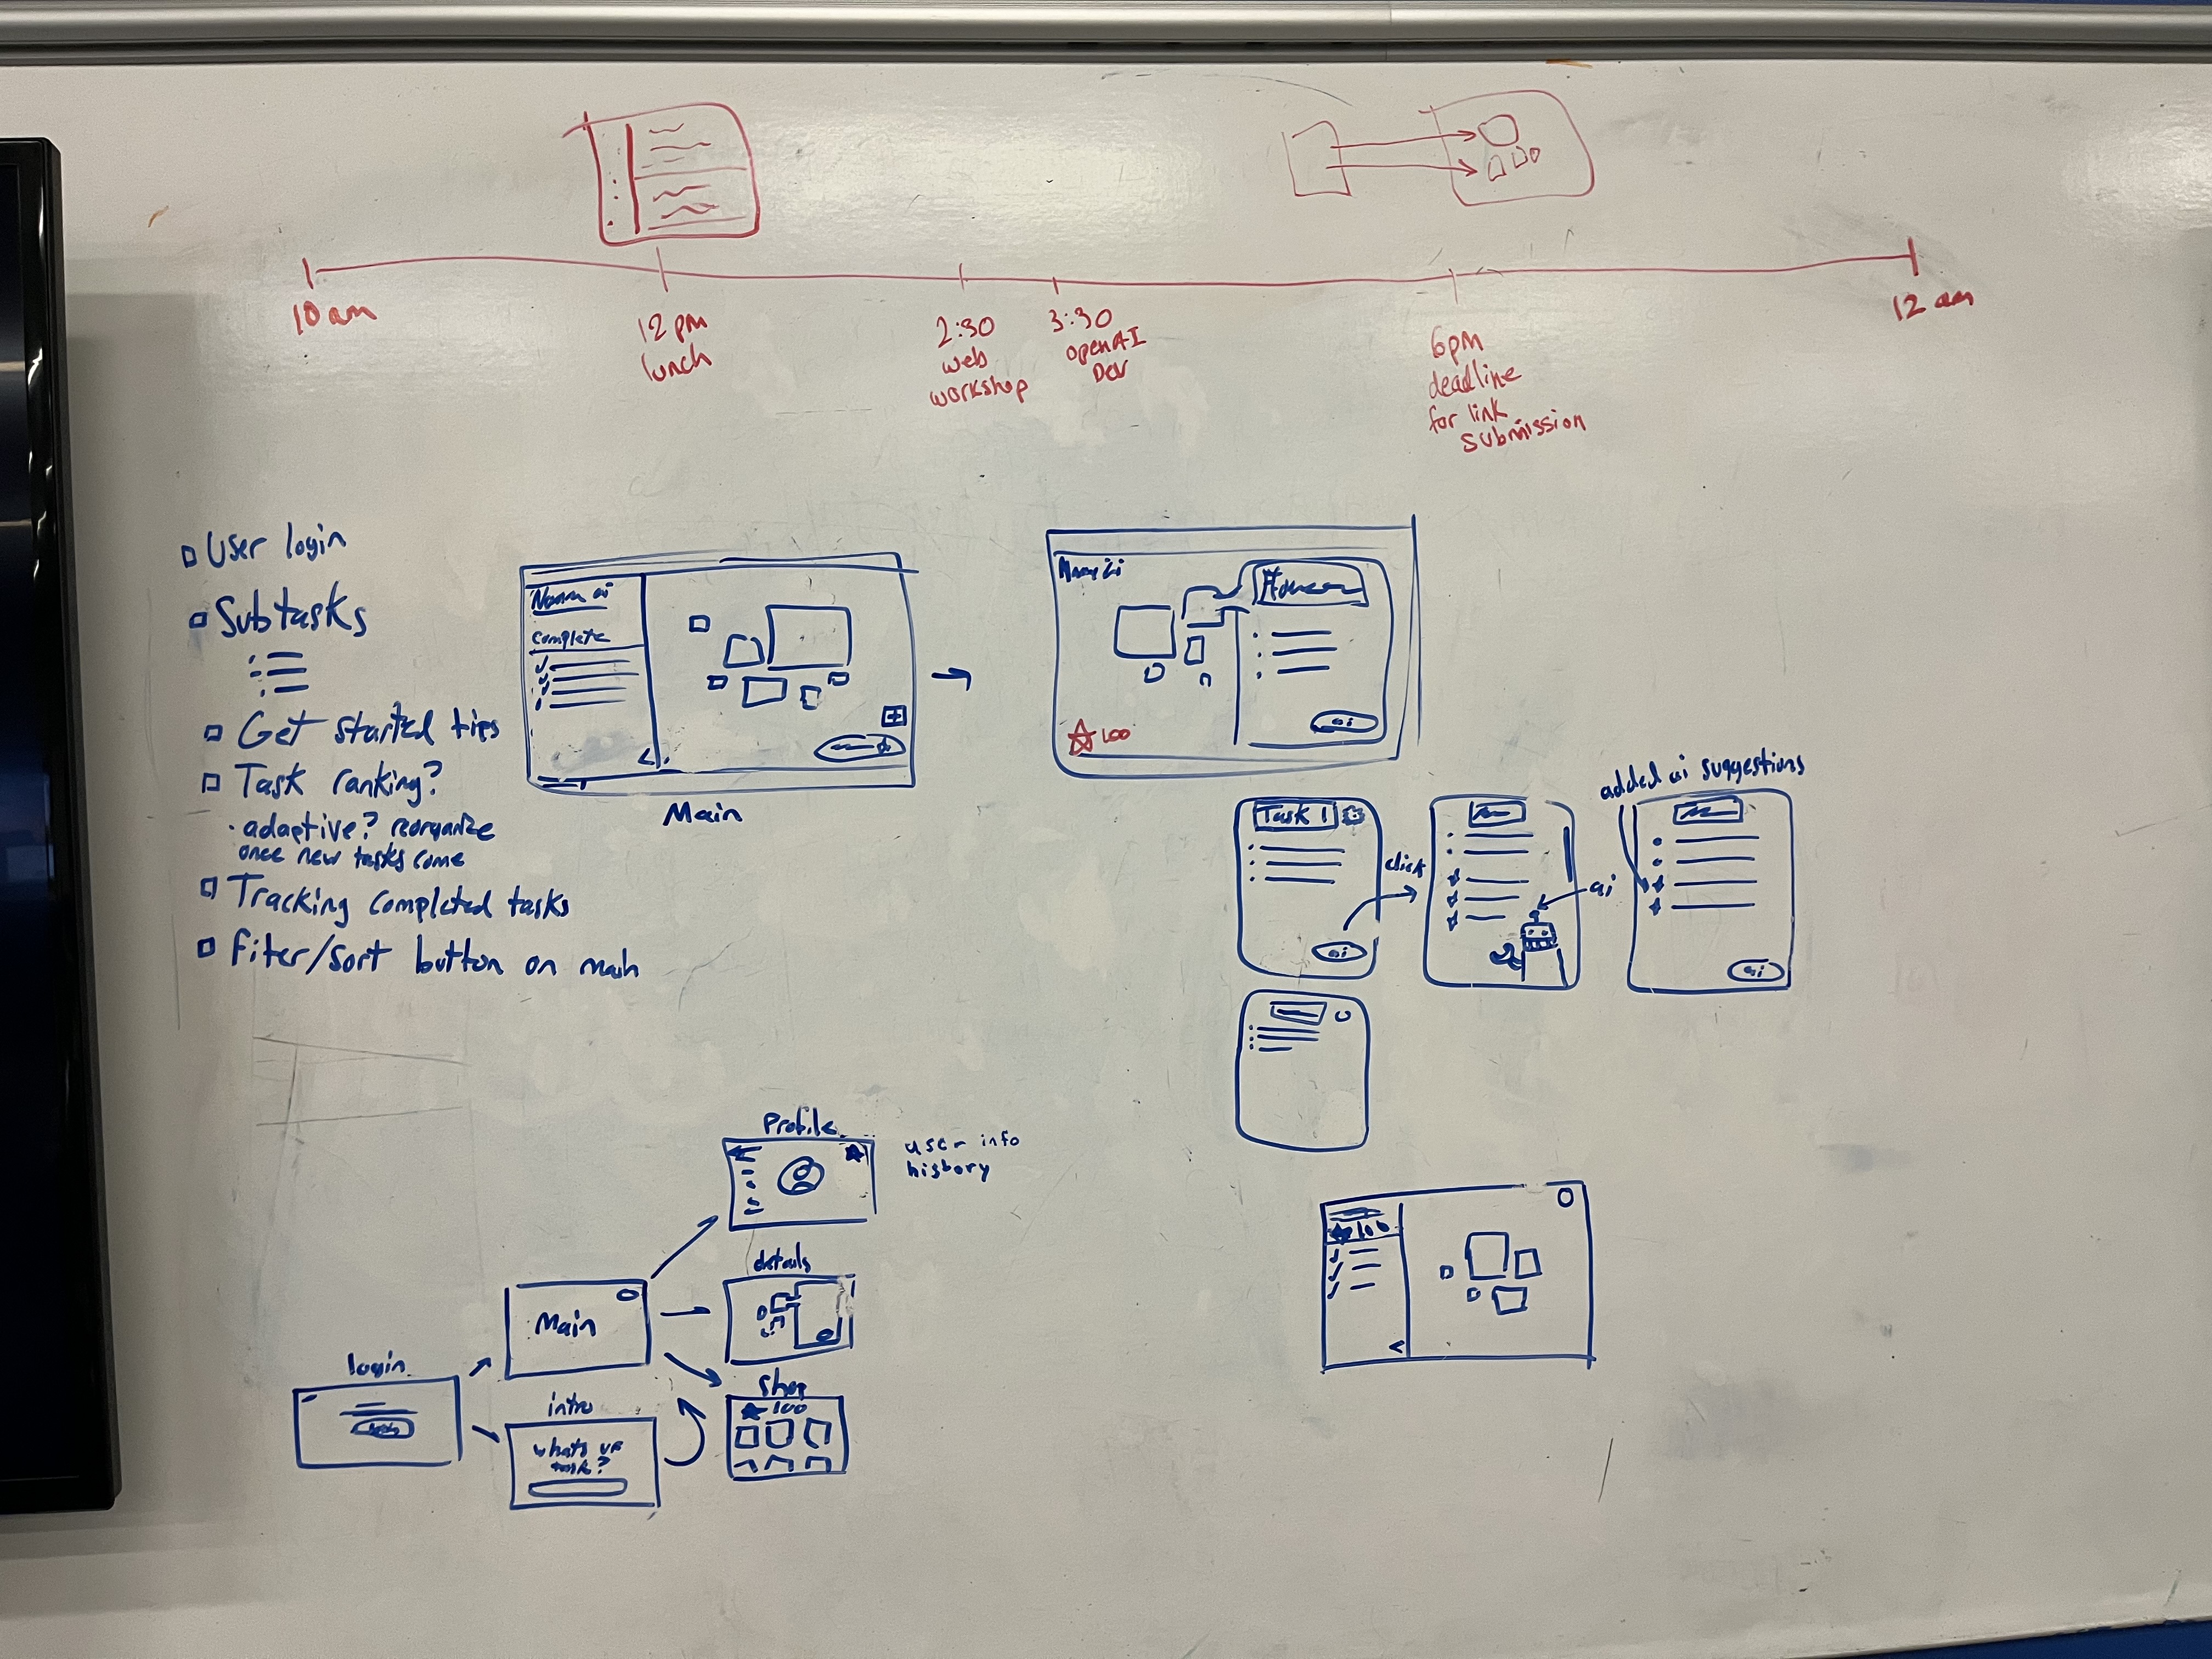 10 am
12 pm
lunch
2:30
web
workshop
3:30
OpenAI
Dev
6pm
deadline
for link
submission
12 am
User login
Subtasks
Get started tips
Task ranking?
· adaptive? reorganize
once new tasks come
Tracking completed tasks
filter/sort button on main
ai
Complete
Main
100
ai
added ai suggestions
Task 1
ai
click
ai
ai
Profile
user info
history
details
Main
login
intro
whats ur
task?
Shop
100
100